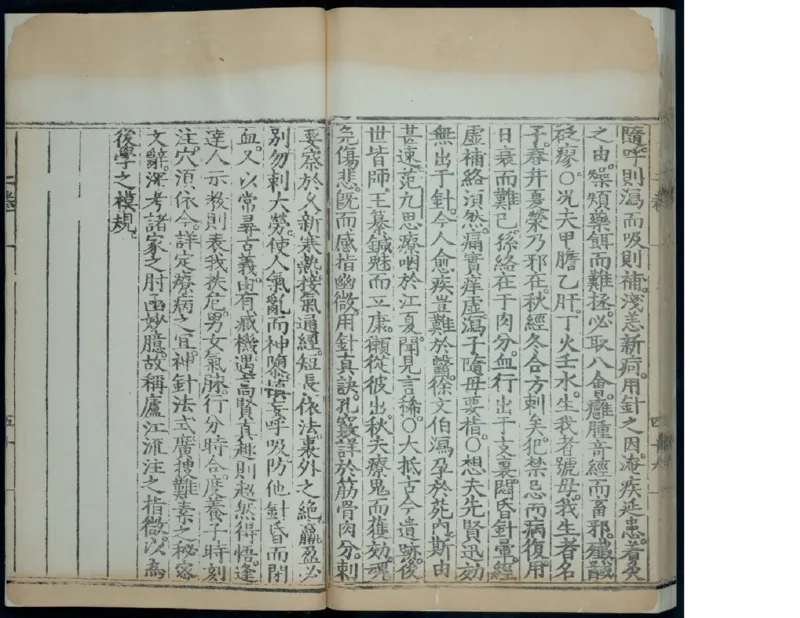 隨呼則瀉而吸則補淺恙新疴用針之因淹疾延患着灸
之由躁煩藥餌而難拯必取八會癰腫奇經而畜邪纖馘
砭瘳○况夫甲膽乙肝丁火壬水生我者號母我生者名
子春井夏滎乃邪在秋經冬合方刺矣犯禁忌而病復用
日衰而難已孫絡在于肉分血行出于支裏悶昏針暈經
虛補絡湏然痛實痒虛瀉子隨母要指○想夫先賢迅効
無出于針今人愈疾豈難於醫徐文伯瀉孕於苑內斯由
甚速范九思療咽於江夏聞見言稀○大抵古今遺跡後
世皆師王纂鍼魅而立康獺從彼出秋夫療鬼而獲効魂
免傷悲旣而感指幽微用針眞訣孔竅詳於筋骨肉分刺
要察於久新寒熱接氣通經短長依法裏外之絶羸盈必
別勿刺大勞使人氣亂而神隳愼妄呼吸防他針昏而閉
血又以常尋古義由有藏機遇高賢眞趣則超然得悟逢
達人示教則表我扶危男女氣脉行分時合度養子時刻
注穴湏依今詳定療病之宜神針法式廣搜難素之秘密
文辭深考諸家之肘函妙臆故稱廬江流注之指微以爲
後學之模規